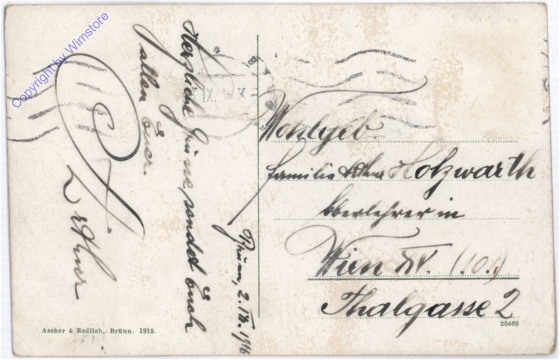 Copyright by Wimstore
Herzliche Grüsse sendet Euch
allen Euer
Brünn, 2. IV. 1916
Wohlgeb.
Familie Holzwarth
Oberlehrer in
Wien XV. (10.)
Thalgasse 2
Ascher & Redlich, Brünn. 1915.
28468